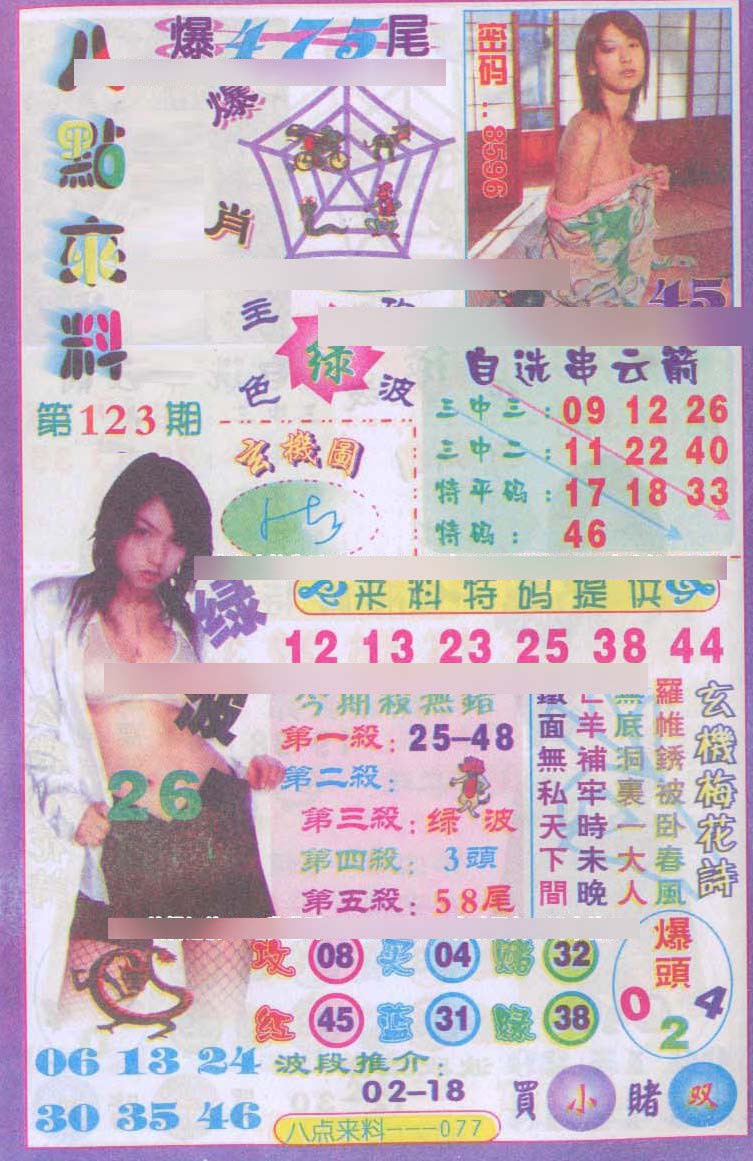 八點來料
爆475尾
爆肖
密码:8596
45
主攻
绿
色波
第123期
玄機圖
自选串云箭
三中三:09 12 26
三中二:11 22 40
特平码:17 18 33
特码:46
来料特码提供
12 13 23 25 38 44
绿波
26
今期殺無錯
第一殺:25-48
第二殺:
第三殺:绿波
第四殺:3頭
第五殺:58尾
玄機梅花詩
羅帷銹被卧春風
無底洞裏一大人
亡羊補牢時未晚
鐵面無私天下間
攻 08 买 04 赌 32
红 45 蓝 31 绿 38
爆頭
0 2 4
06 13 24
30 35 46
波段推介:
02-18
買小賭双
八点来料---077